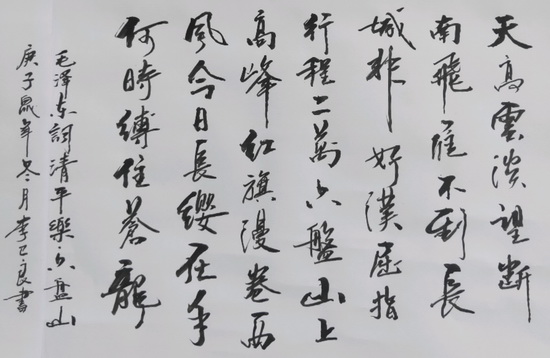 天高雲淡望断
南飛雁不到長
城非好漢屈指
行程二萬六盤山上
高峰紅旗漫卷西
風今日長纓在手
何時縛住蒼龍
毛澤东詞清平樂六盤山
庚子鼠年冬月李良書